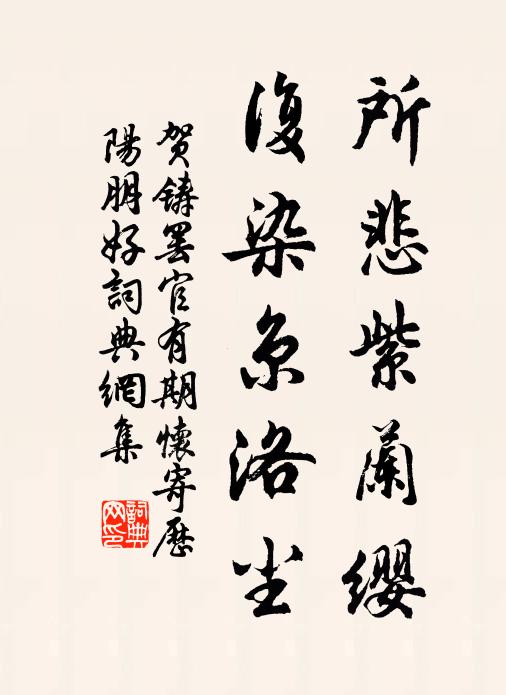 所悲紫蘭纓
復染京洛尘
贺鑄罢官有期懷寄歷
陽朋好詞典網集
詞典
网印